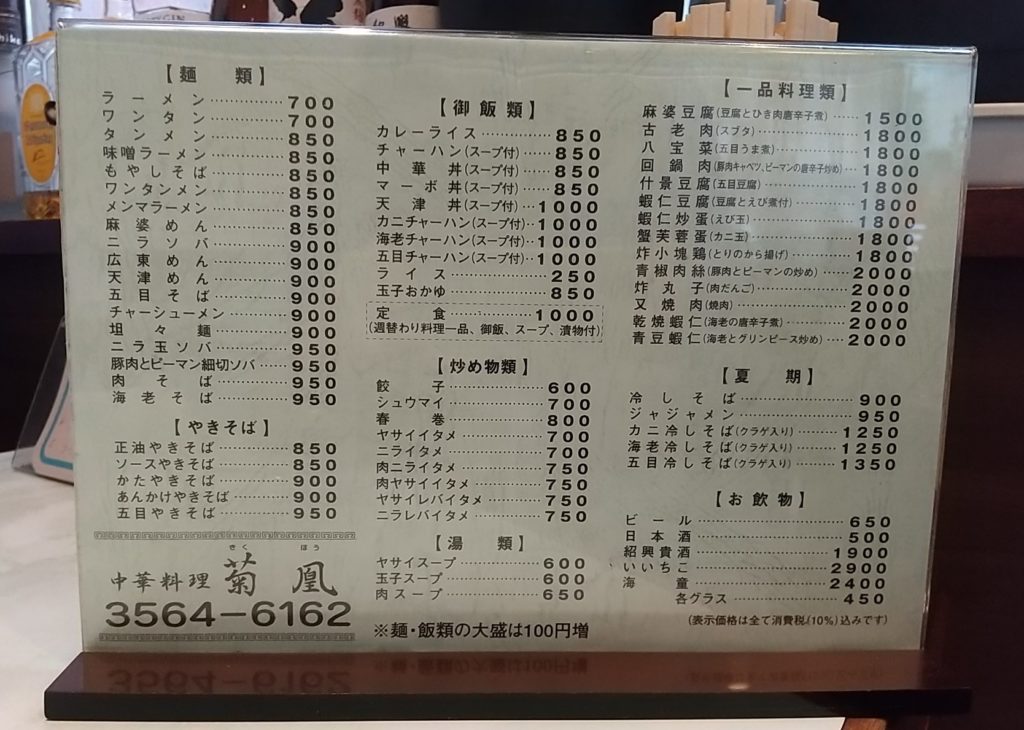 【麺 類】
ラーメン……………700
ワンタン……………700
タンメン……………850
味噌ラーメン…………850
もやしそば……………850
ワンタンメン…………850
メンマラーメン………850
麻婆めん……………850
ニラソバ……………900
広東めん……………900
天津めん……………900
五目そば……………900
チャーシューメン……900
坦々麺………………900
ニラ玉ソバ……………950
豚肉とピーマン細切ソバ……950
肉そば………………950
海老そば……………950
【やきそば】
正油やきそば…………850
ソースやきそば………850
かたやきそば…………900
あんかけやきそば……900
五目やきそば…………950
中華料理 菊凰
きく ほう
3564-6162
【御飯類】
カレーライス…………850
チャーハン(スープ付)……850
中華丼(スープ付)……850
マーボ丼(スープ付)……850
天津丼(スープ付)…1000
カニチャーハン(スープ付)…1000
海老チャーハン(スープ付)…1000
五目チャーハン(スープ付)…1000
ライス………………250
玉子おかゆ……………850
定食…………………1000
(週替わり料理一品、御飯、スープ、漬物付)
【炒め物類】
餃子…………………600
シュウマイ……………700
春巻…………………800
ヤサイイタメ…………700
ニライタメ……………700
肉ニライタメ…………750
肉ヤサイイタメ………750
ヤサイレバイタメ……750
ニラレバイタメ………750
【湯 類】
ヤサイスープ…………600
玉子スープ……………600
肉スープ……………650
※麺・飯類の大盛は100円増
【一品料理類】
麻婆豆腐(豆腐とひき肉唐辛子煮)……1500
古老肉(スブタ)……………1800
八宝菜(五目うま煮)…………1800
回鍋肉(豚肉キャベツ、ピーマンの唐辛子炒め)……1800
什景豆腐(五目豆腐)…………1800
蝦仁豆腐(豆腐とえび煮付)……1800
蝦仁炒蛋(えび玉)……………1800
蟹芙蓉蛋(カニ玉)……………1800
炸小塊鶏(とりのから揚げ)……1800
青椒肉絲(豚肉とピーマンの炒め)……2000
炸丸子(肉だんご)……………2000
叉焼肉(焼肉)………………2000
乾焼蝦仁(海老の唐辛子煮)……2000
青豆蝦仁(海老とグリンピース炒め)……2000
【夏 期】
冷しそば……………900
ジャジャメン…………950
カニ冷しそば(クラゲ入り)……1250
海老冷しそば(クラゲ入り)……1250
五目冷しそば(クラゲ入り)……1350
【お飲物】
ビール………………650
日本酒………………500
紹興貴酒……………1900
いいちこ……………2900
海童…………………2400
各グラス……………450
(表示価格は全て消費税(10%)込みです)